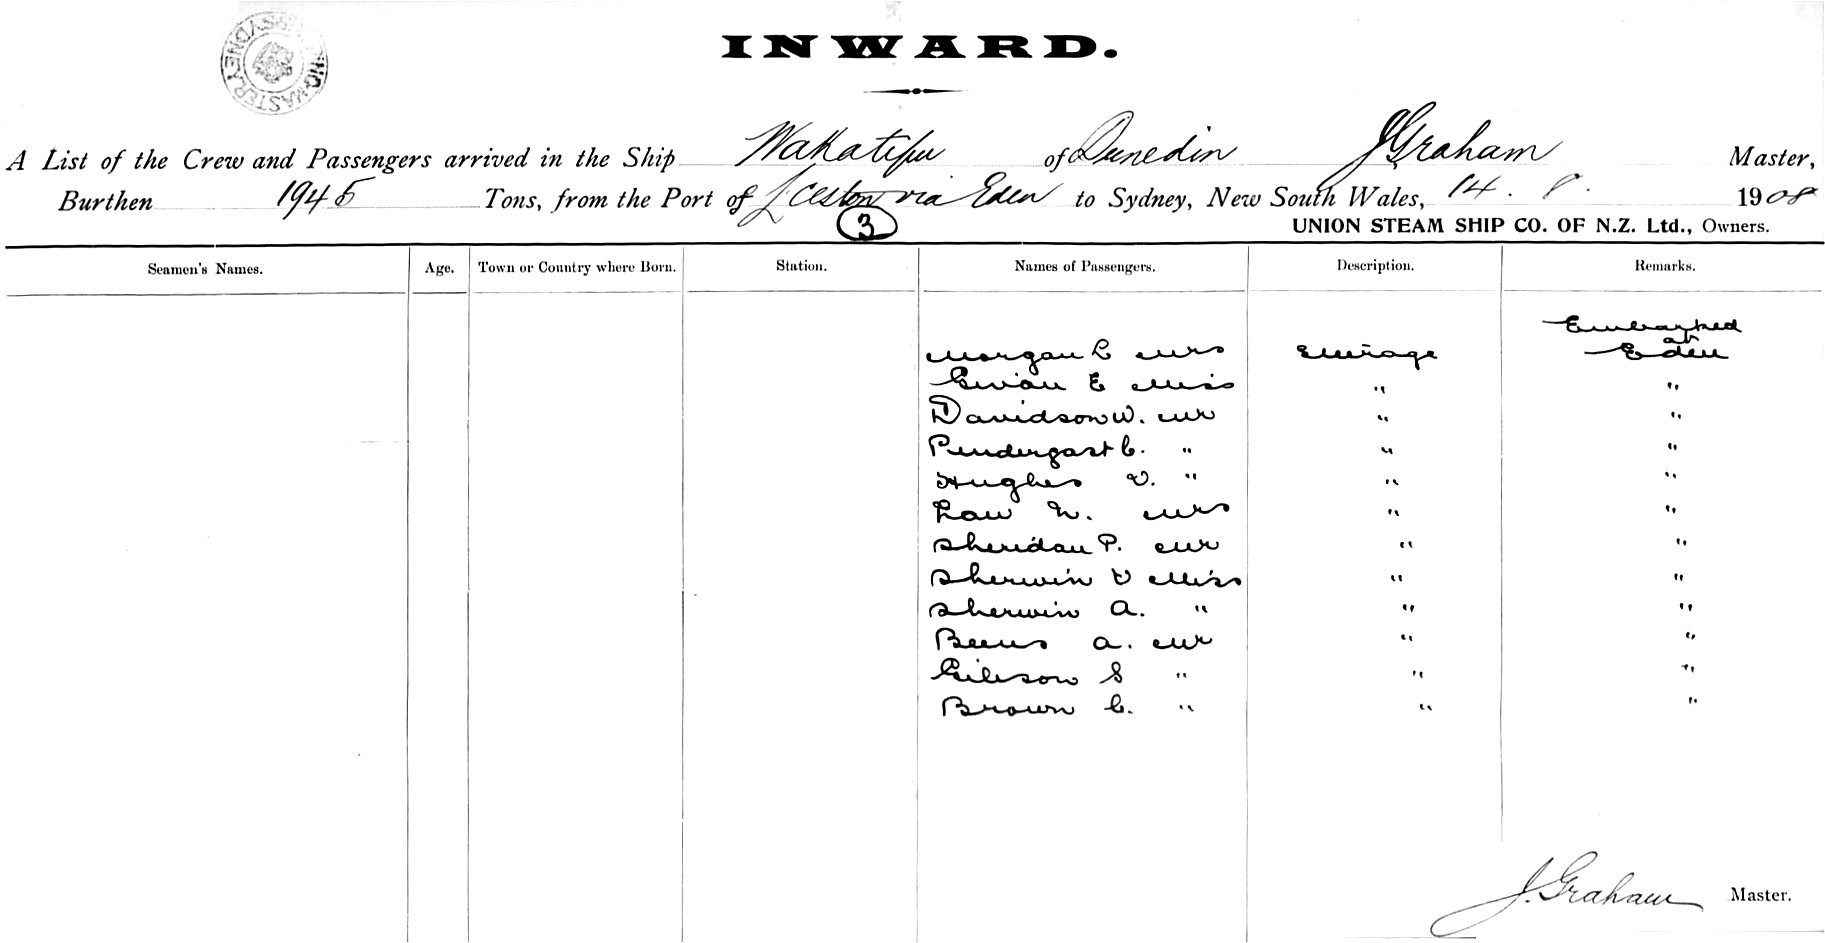 SHIPPING MASTER SYDNEY
INWARD.
A List of the Crew and Passengers arrived in the Ship Wakatipu of Dunedin J Graham Master,
Burthen 1945 Tons, from the Port of L'ceston via Eden to Sydney, New South Wales, 14. 8. 1908
3
UNION STEAM SHIP CO. OF N.Z. Ltd., Owners.
Seamen's Names. Age. Town or Country where Born. Station. Names of Passengers. Description. Remarks.
Embarked
at
Morgan L Mrs Steerage Eden
E Miss " "
Davidson W. Mr " "
Pendergast C. " " "
Hughes V. " " "
Law N. Mrs " "
Sheridan P. Mr " "
Sherwin V Miss " "
Sherwin A. " " "
A. Mr " "
Gibson S " " "
Brown C. " " "
J. Graham Master.